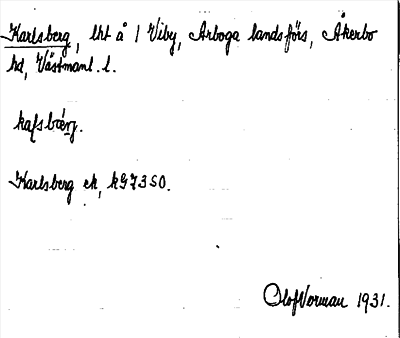 Karlsberg, lht å 1 Viby, Arboga landsförs, Åkerbo
hd, Västmanl. l.
kafsbærj.
Karlsberg ek, kG7350.
Olof Vorman 1931.